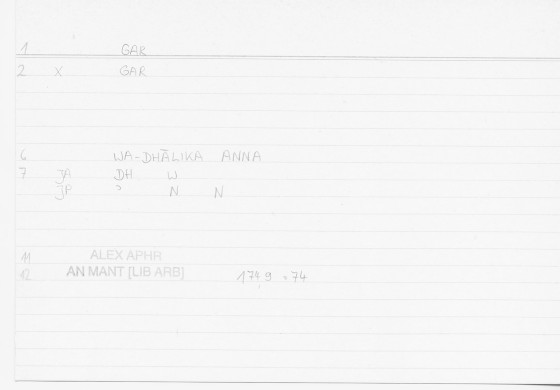 1 GAR
2 X GAR
6 WA-DHĀLIKA ANNA
7 JA DH W
JP ʾ N N
11 ALEX APHR
12 AN MANT [LIB ARB] 179.9 .74